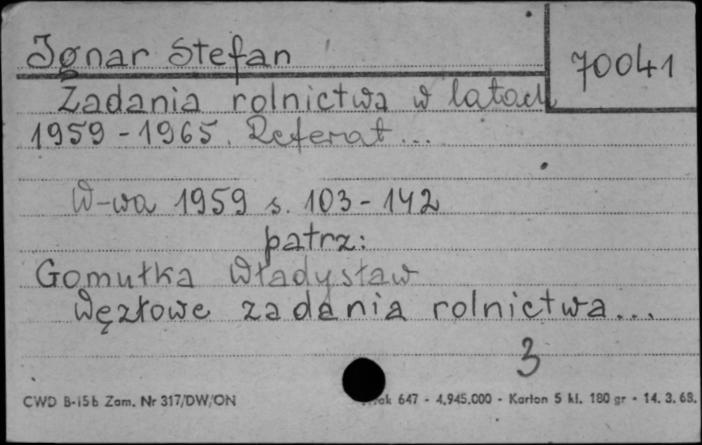 Ignar Stefan
70041
Zadania rolnictwa w latach
1959-1965. Referat...
W-wa 1959 s. 103-142
patrz:
Gomułka Władysław
Węzłowe zadania rolnictwa...
3
CWD B-15b Zam. Nr 317/DW/ON
647 - 4.945.000 - Karton 5 kl. 180 gr - 14. 3. 68.